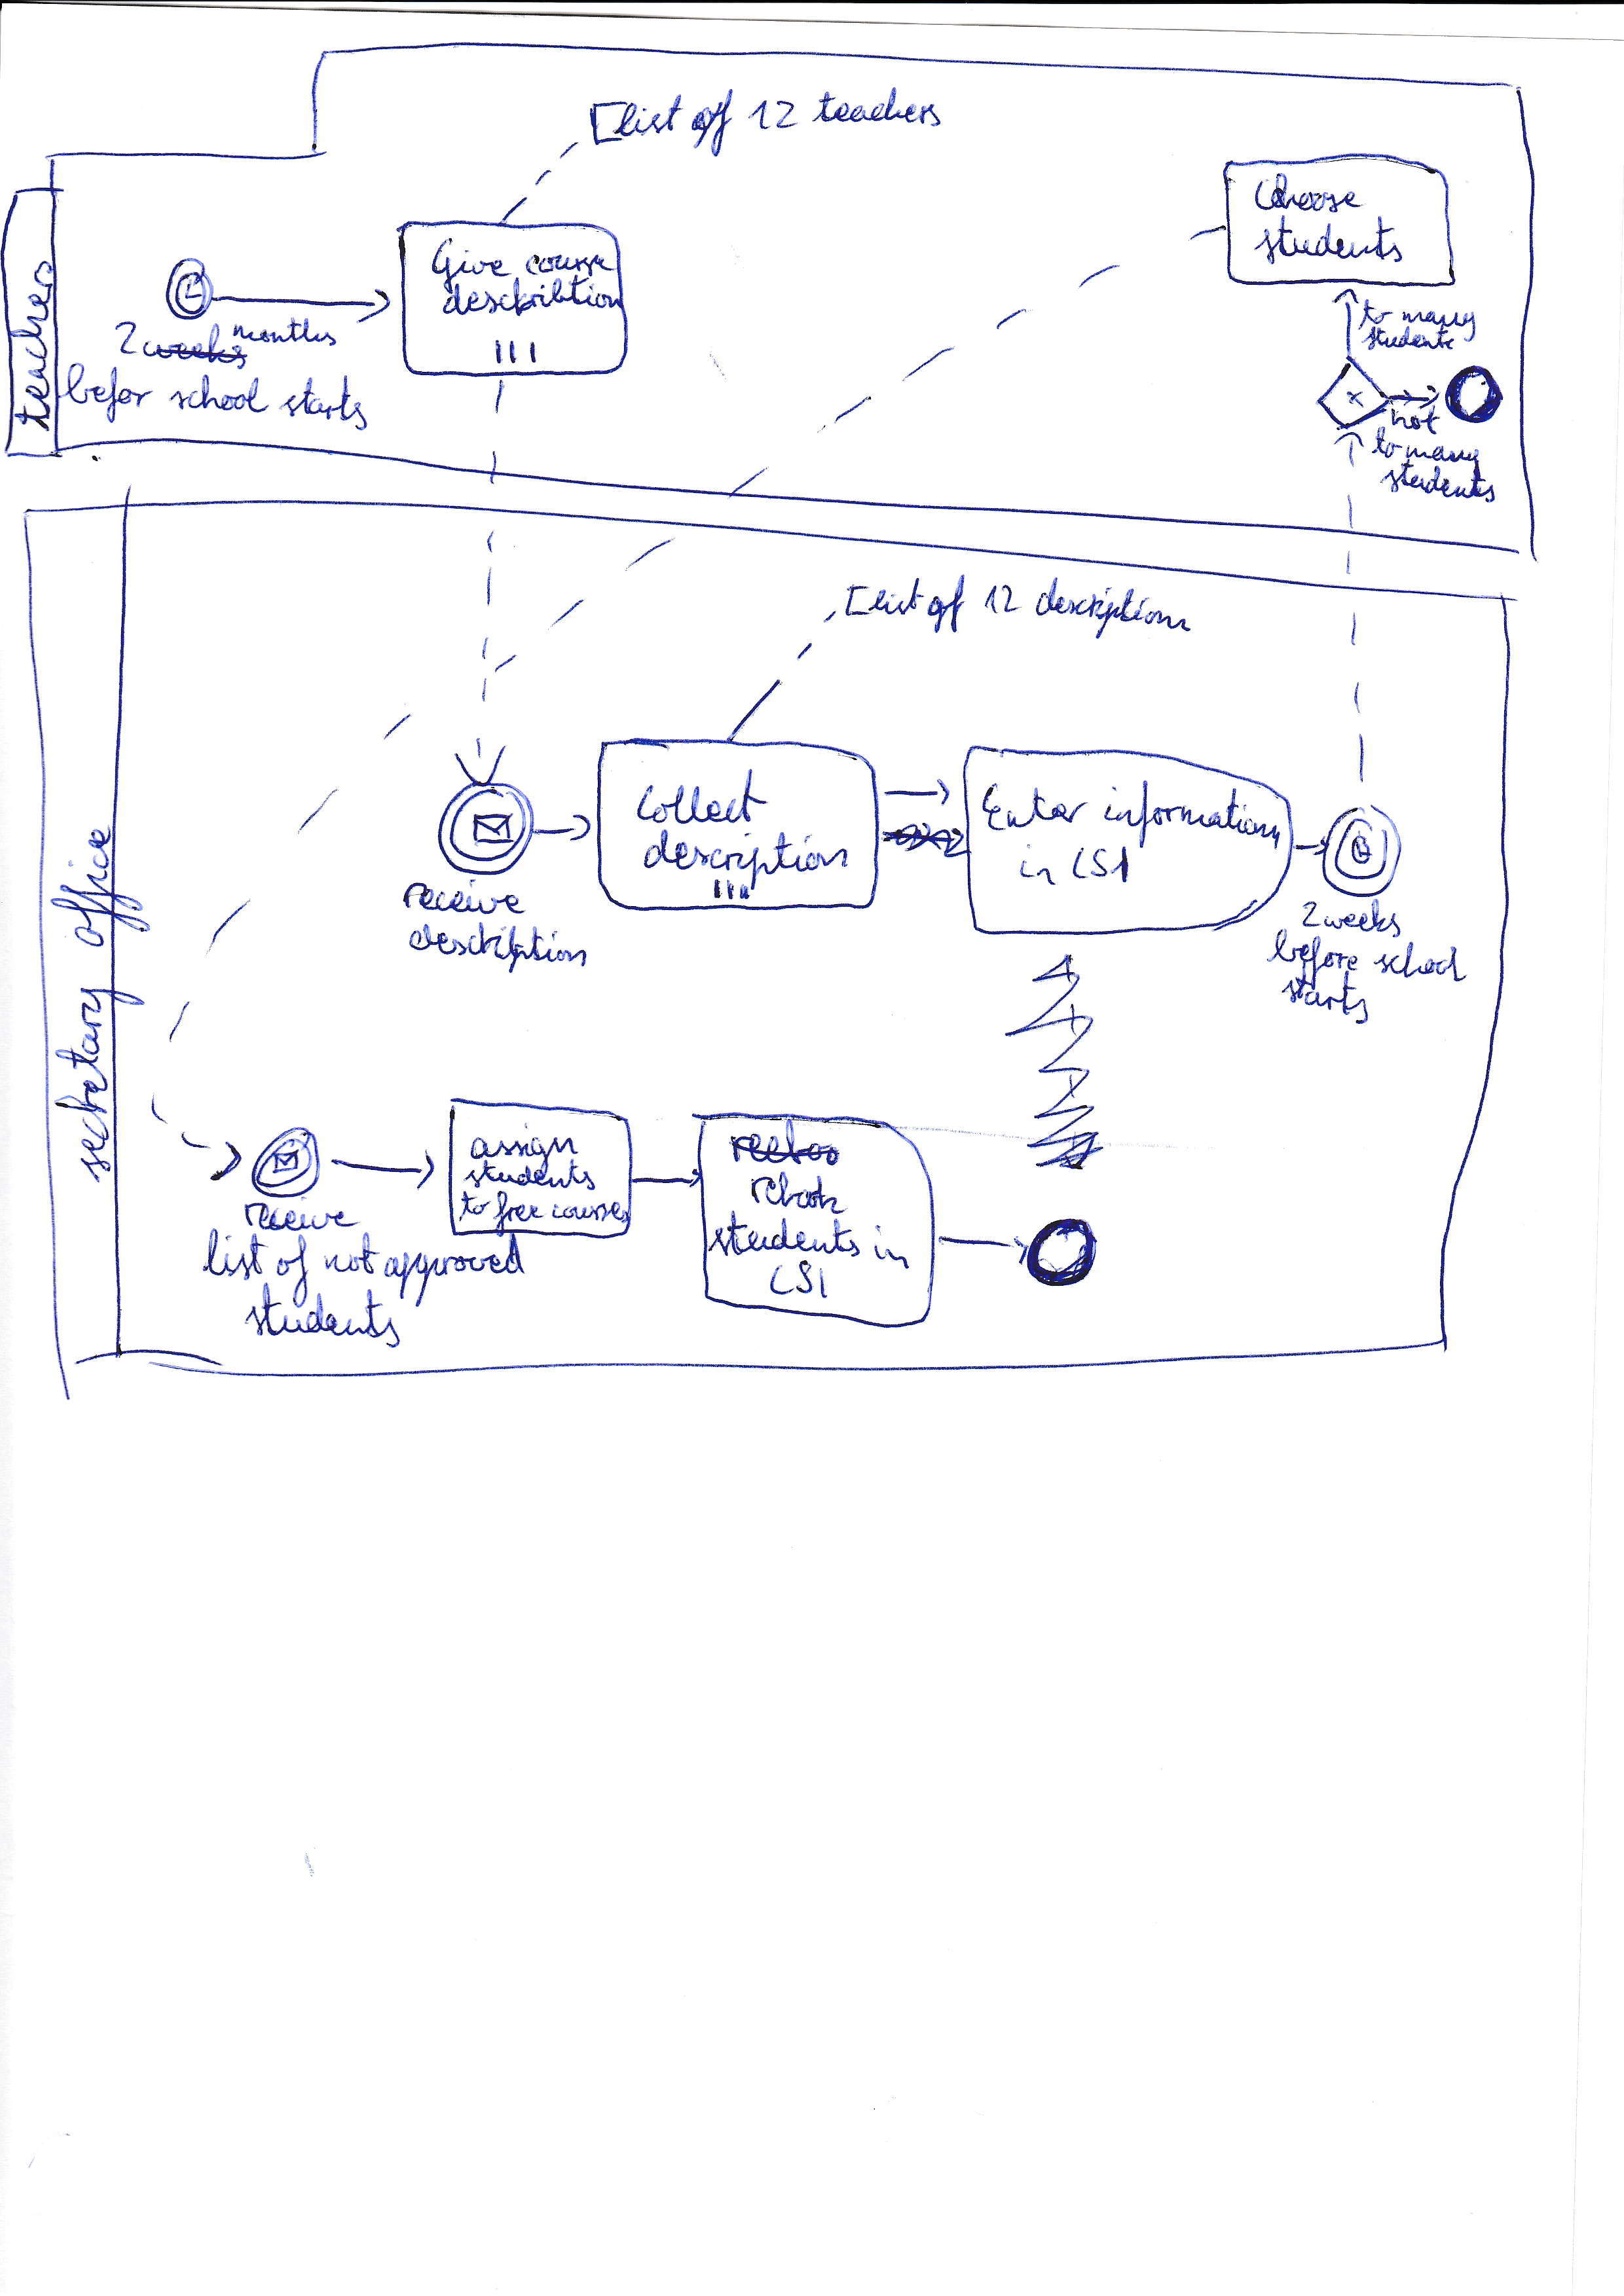 [list of 12 teachers
teachers
Give course
describtion
2 months
befor school starts
Choose
students
to many
students
not
to many
students
secretary office
[list of 12 descriptions
receive
description
Collect
description
Enter information
in CSI
2 weeks
before school
starts
receive
list of not approved
students
assign
students
to free courses
rebook
students in
CSI